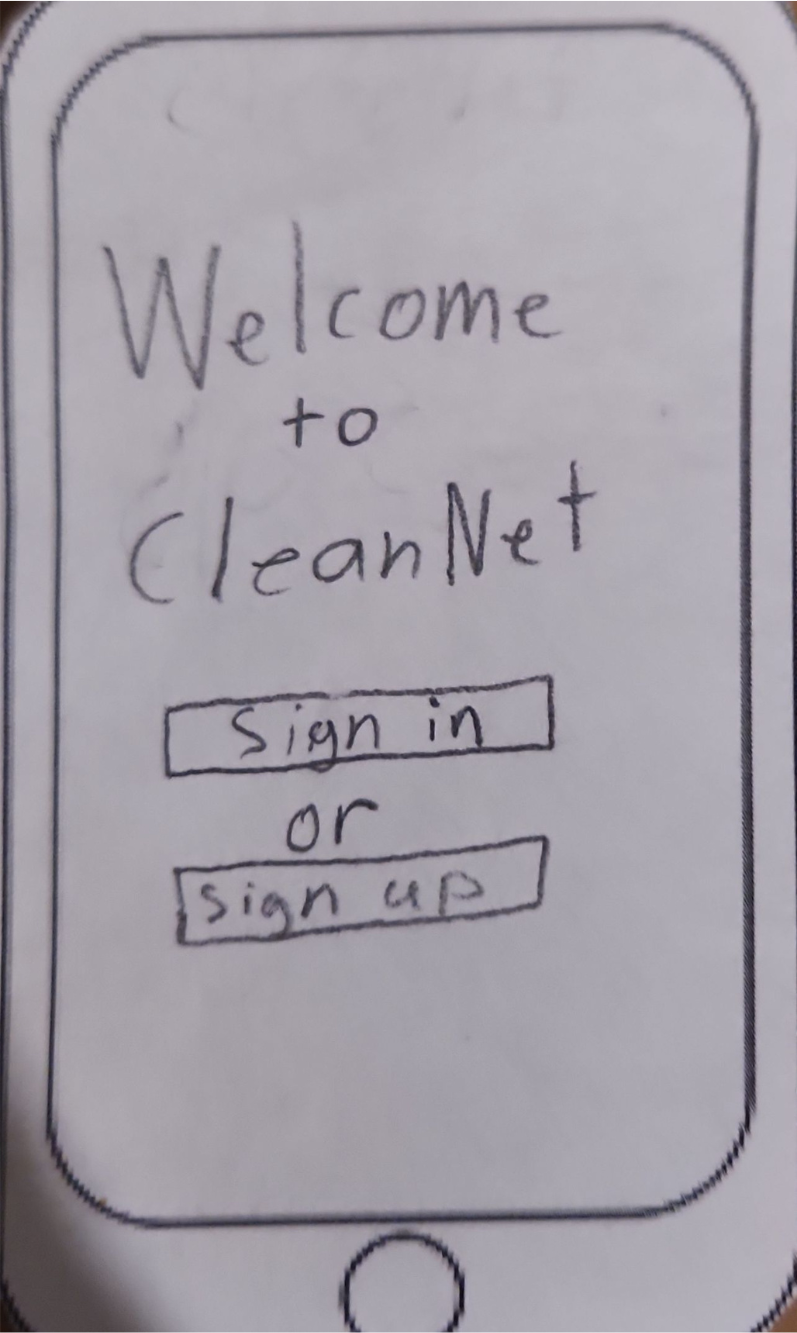 Welcome
to
CleanNet
Sign in
or
Sign up